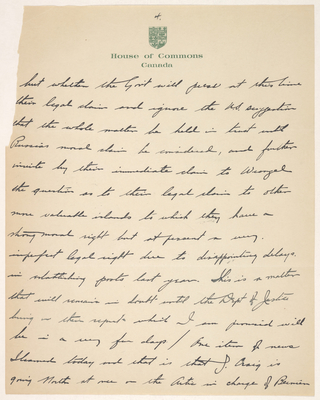 4.
House of Commons
Canada
but whether the Govt will press at this time
their legal claim and ignore the suggestion
that the whole matter be held in trust until
Russia's moral claim be considered, and further
invite by their immediate claim to Wrangel
the question as to their legal claim to other
more valuable islands to which they have a
strong moral right but at present a very
imperfect legal right due to disappointing delays
in establishing posts last year. This is a matter
that will remain in doubt until the Dept of Justice
bring in their report which I am promised will
be in a very few days / One item of news
I learned today and that is that J. Craig is
going North at once on the Arctic in charge of Bernier